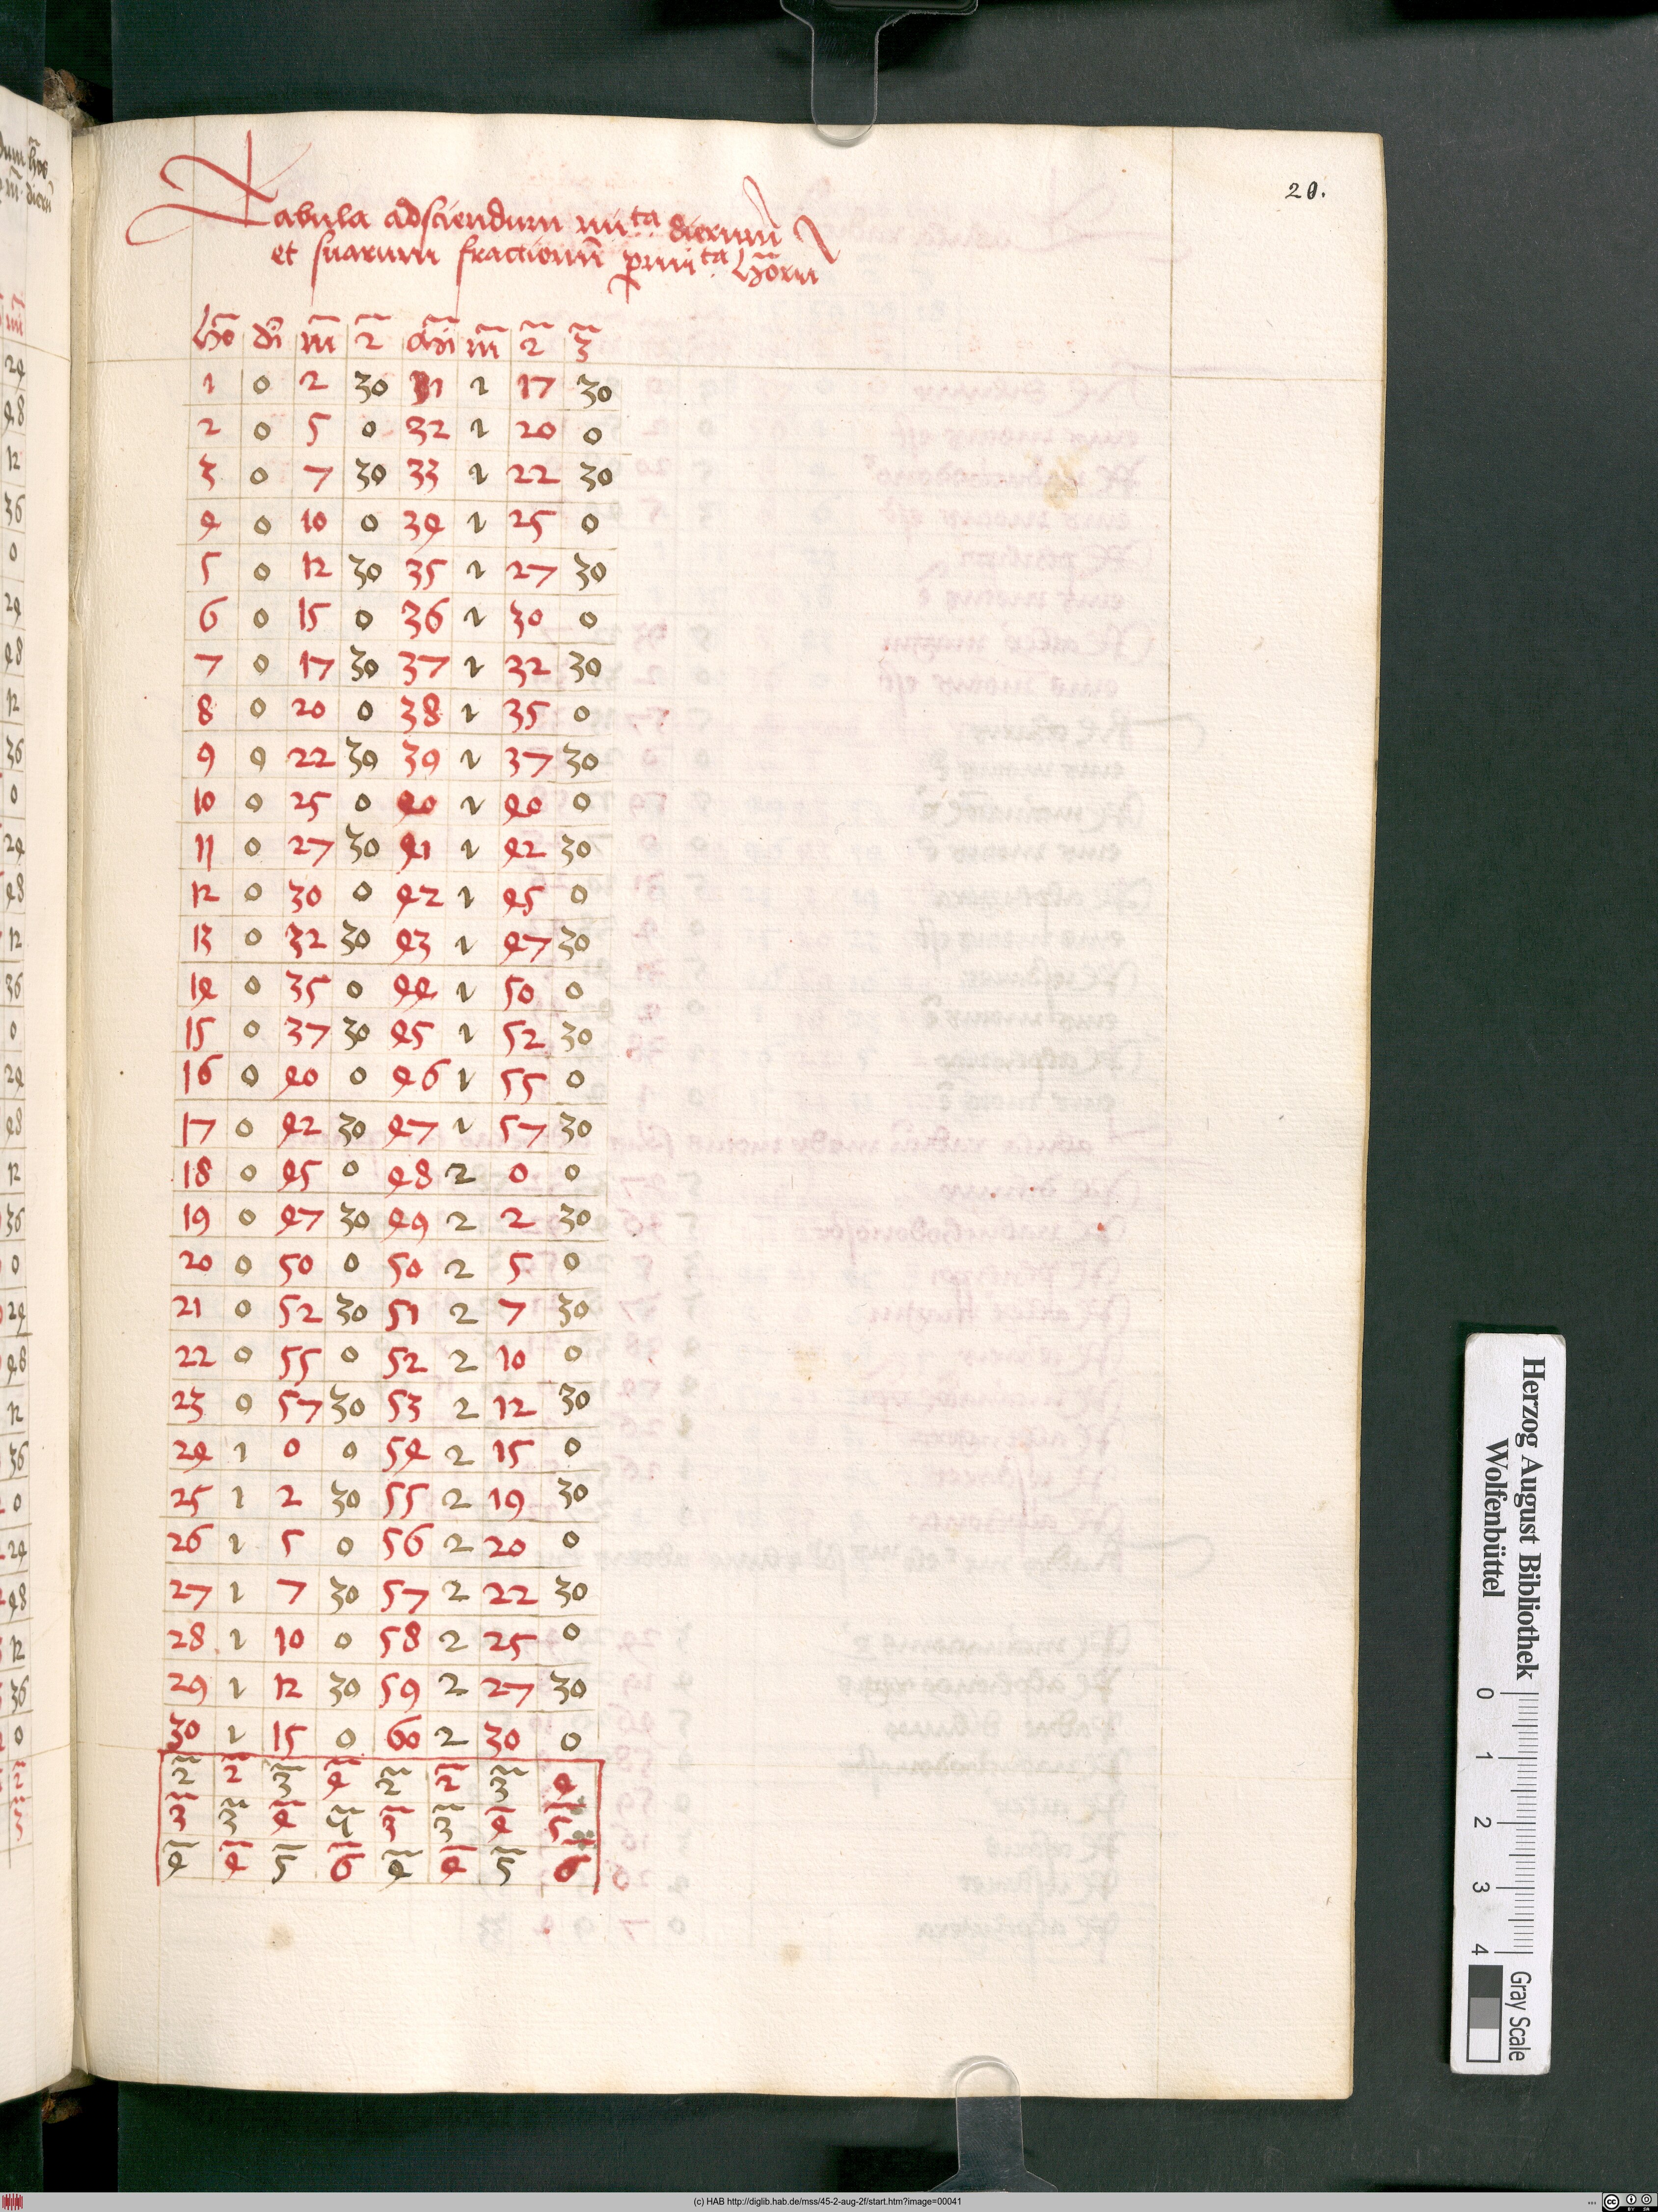 20.
Tabula adsciendum mi᷑ta dierum̄
et suarum fractionū ꝑmi᷑ta hōrū
hō di m̄ 2 di m̄ 2 3
1 0 2 30 31 1 17 30
2 0 5 0 32 1 20 0
3 0 7 30 33 1 22 30
4 0 10 0 34 1 25 0
5 0 12 30 35 1 27 30
6 0 15 0 36 1 30 0
7 0 17 30 37 1 32 30
8 0 20 0 38 1 35 0
9 0 22 30 39 1 37 30
10 0 25 0 40 1 40 0
11 0 27 30 41 1 42 30
12 0 30 0 42 1 45 0
13 0 32 30 43 1 47 30
14 0 35 0 44 1 50 0
15 0 37 30 45 1 52 30
16 0 40 0 46 1 55 0
17 0 42 30 47 1 57 30
18 0 45 0 48 2 0 0
19 0 47 30 49 2 2 30
20 0 50 0 50 2 5 0
21 0 52 30 51 2 7 30
22 0 55 0 52 2 10 0
23 0 57 30 53 2 12 30
24 1 0 0 54 2 15 0
25 1 2 30 55 2 19 30
26 1 5 0 56 2 20 0
27 1 7 30 57 2 22 30
28 1 10 0 58 2 25 0
29 1 12 30 59 2 27 30
30 1 15 0 60 2 30 0
2 2 3 4 2 2 3 4
3 3 4 5 3 3 4 5
4 4 5 6 4 4 5 6
Herzog August Bibliothek
Wolfenbüttel
0 1 2 3 4
Gray Scale
(c) HAB http://diglib.hab.de/mss/45-2-aug-2f/start.htm?image=00041